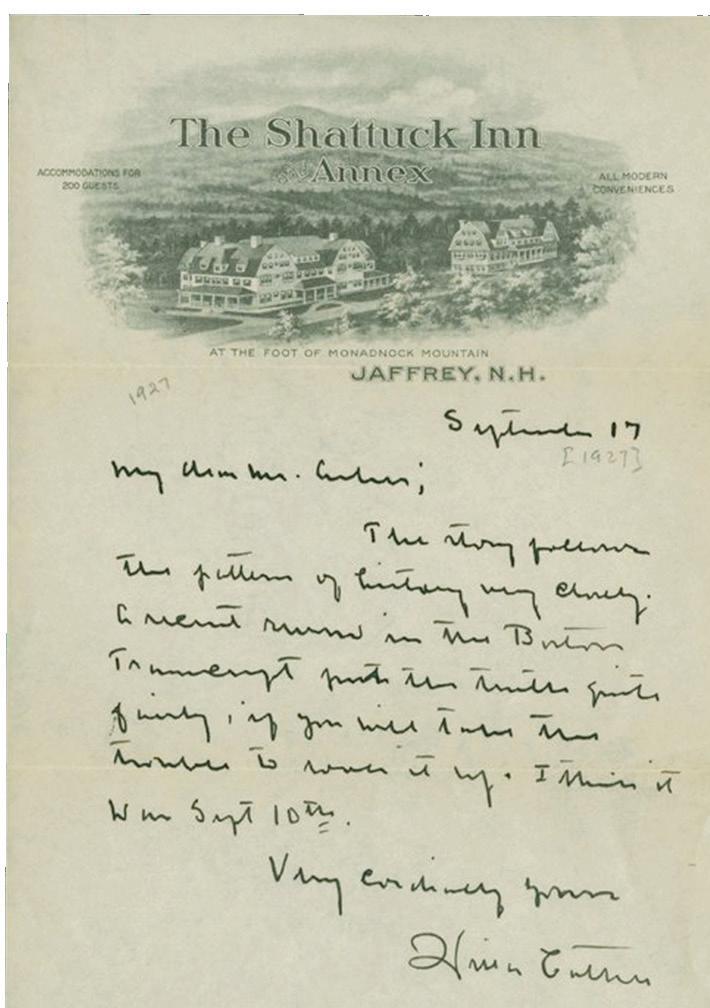 The Shattuck Inn
and Annex
ACCOMMODATIONS FOR
200 GUESTS
ALL MODERN
CONVENIENCES
AT THE FOOT OF MONADNOCK MOUNTAIN
JAFFREY, N.H.
1927
September 17
[1927]
My dear Mr.
The story follows
the pattern of history very closely.
A recent review in the Boston
Transcript puts the truth quite
fairly, if you will take the
trouble to look it up. I think it
was Sept 10th.
Very cordially yours
Willa Cather